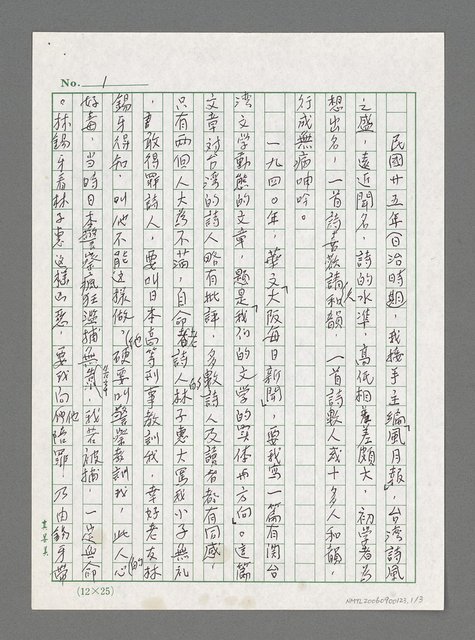 No. 1
民國廿五年(日治時期)，我接手主編「風月報」，台灣詩風
之盛，遠近聞名，詩的水準，高低相差頗大，初學者為
想出名，一首詩喜歡請人和韻，一首詩數人或十多人和韻，
行成無病呻吟。
一九四○年，「華文大阪每日新聞」，要我寫一篇有関台
湾文学動態的文章，題是「我們的文学的実体与方向」。這篇
文章對台湾的詩人略有批評，多數詩人及讀者都有同感，
只有兩個人大為不滿，自命老詩人的林子惠大罵我小子無礼
，膽敢得罪詩人，要叫日本高等刑事教訓我，幸好老友林
錫牙得知，叫他不能這樣做，他硬要叫警察教訓我，此人心的
好毒，当時日本警察瘋狂濫捕無辜，我若被捕，一定無命
。林錫牙看林子惠這樣凶惡，要我向他賠罪，乃由錫牙帶
(12×25)
NMTL20060900123.1/3